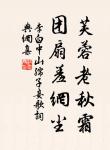 芙蓉老秋霜
团扇羞網尘
李白中山孺子妾歌詞
典網集